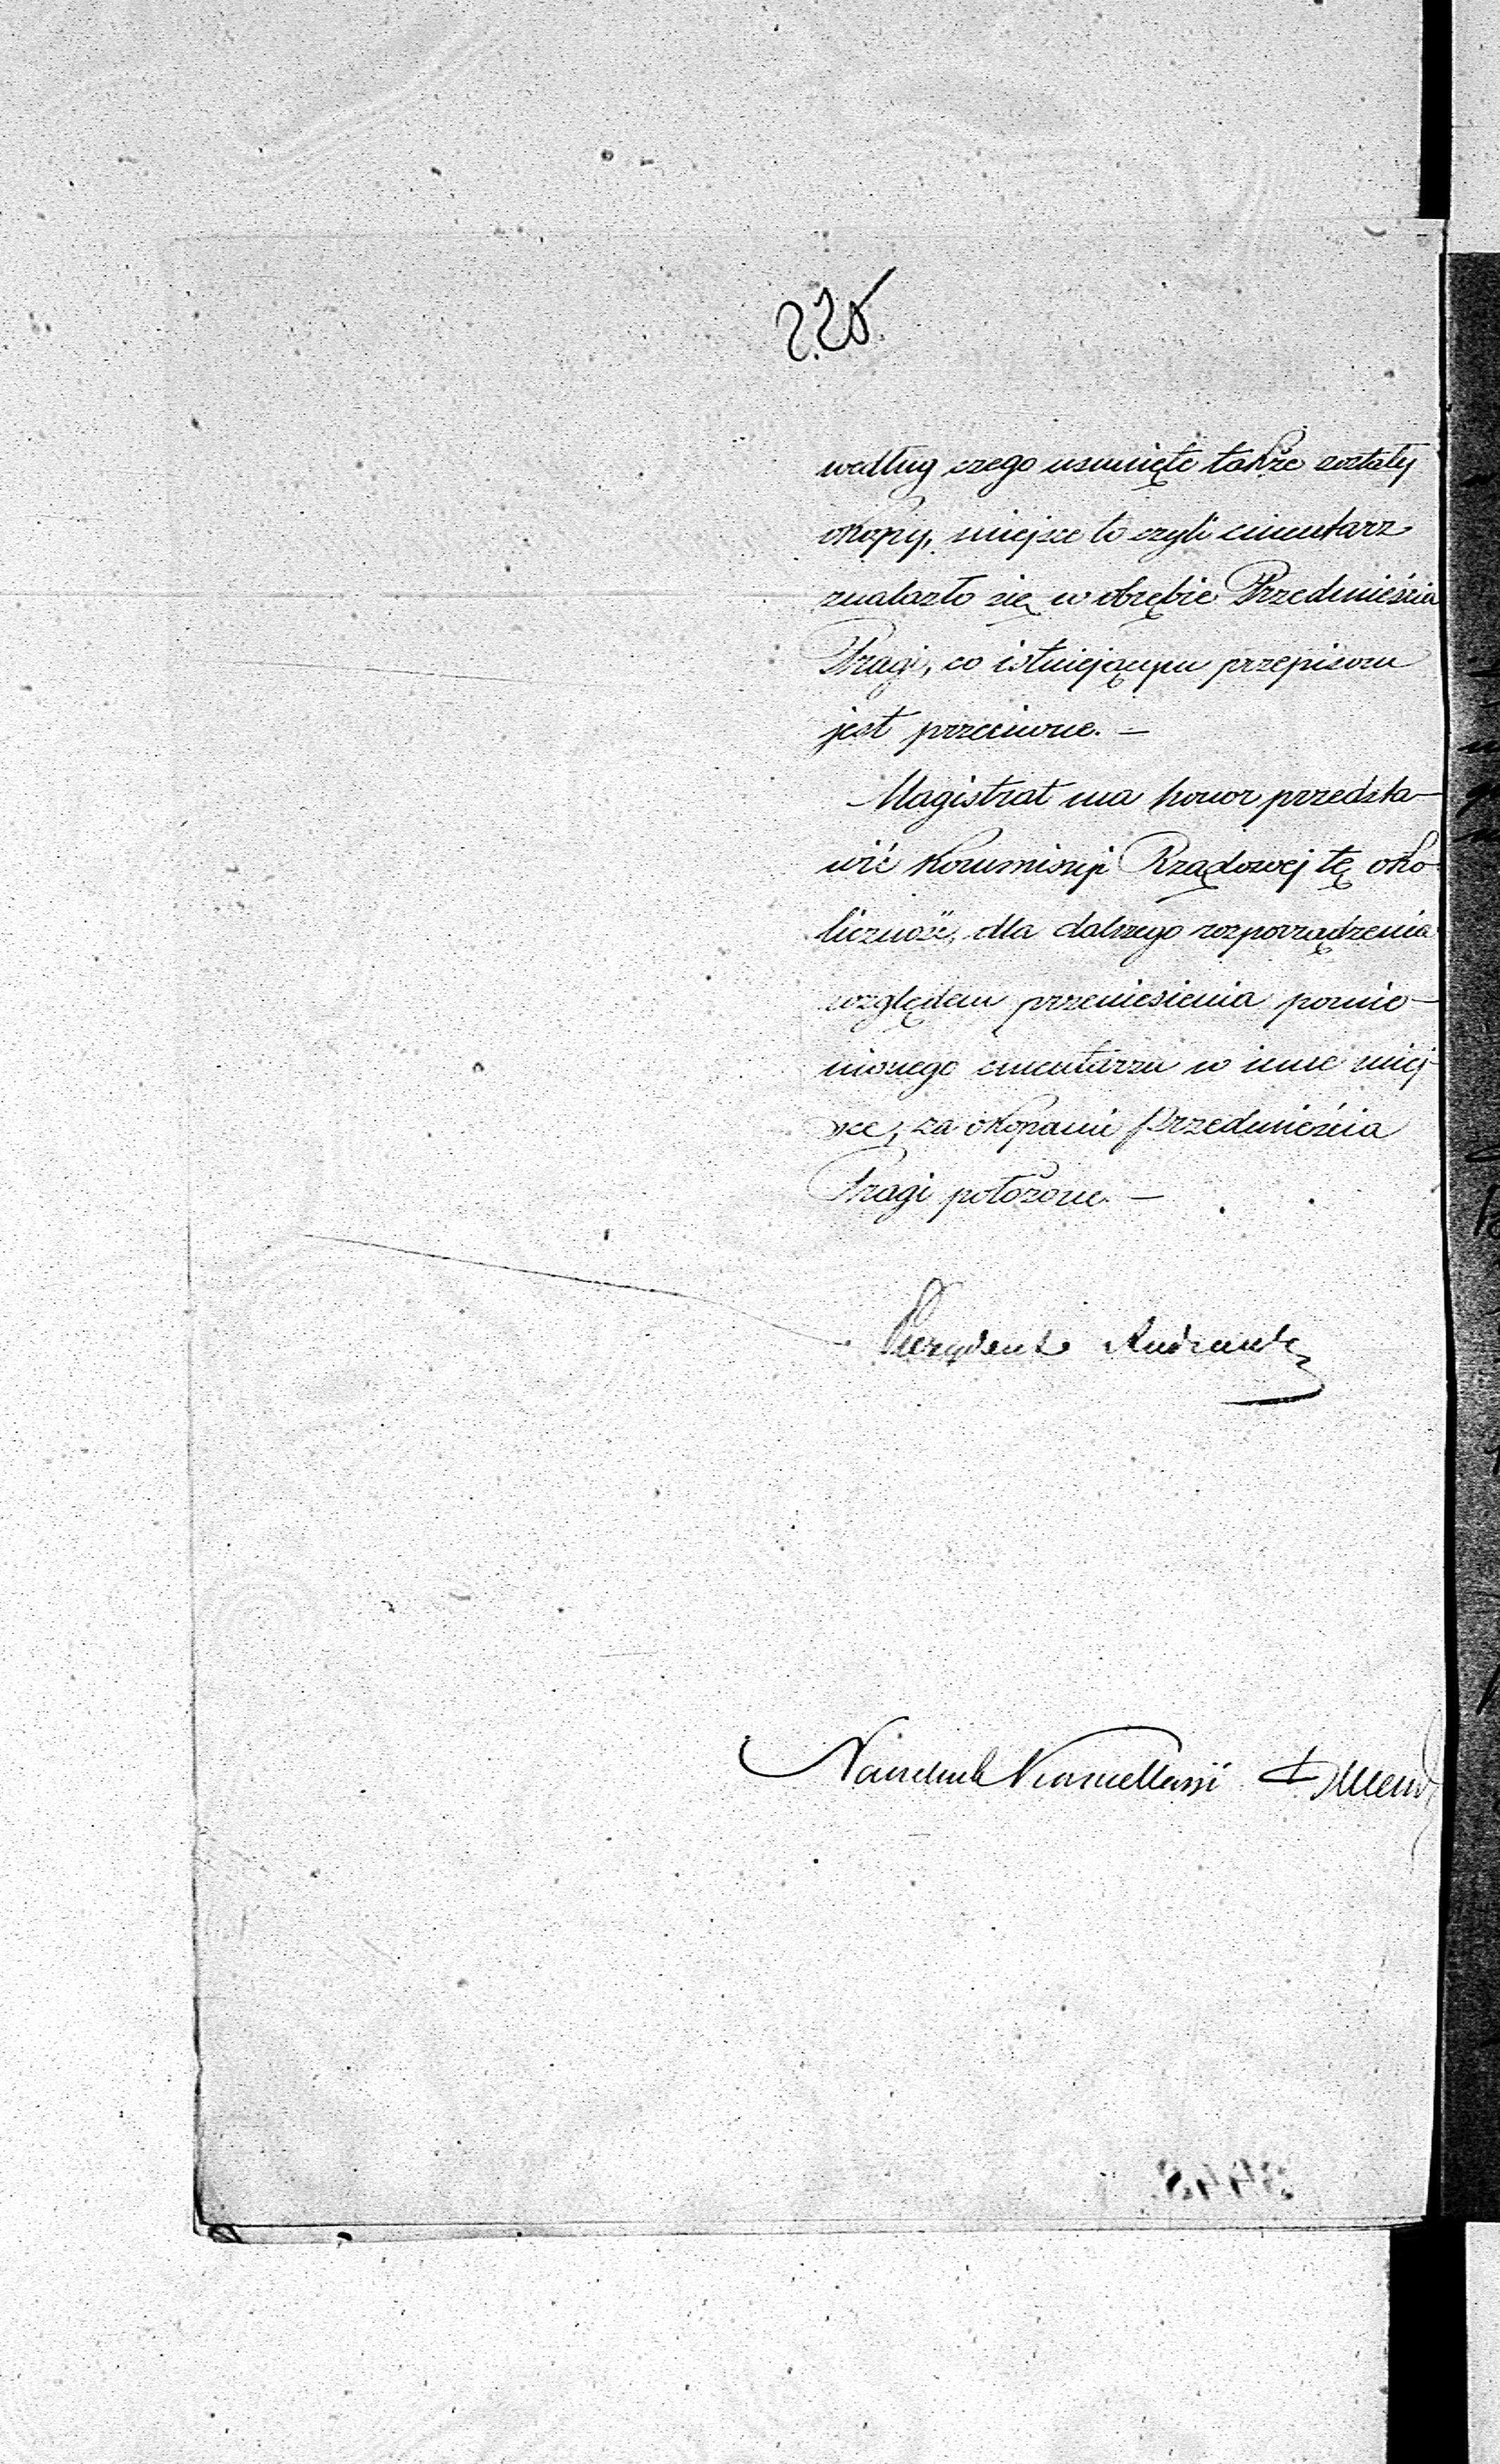 225.
według czego usunięte także zostały
okopy, miejsce to czyli cmentarz
znalazło się w obrębie Przedmieścia
Pragi, co istniejącym przepisom
jest przeciwne. —
Magistrat ma honor przedsta-
wić Kommissyi Rządowej tę oko-
liczność, dla dalszego rozporządzenia
względem przeniesienia pomie-
nionego cmentarza w inne miej-
sce, za okopami Przedmieścia
Pragi położone. —
Prezydent
Naczelnik Kancellaryi